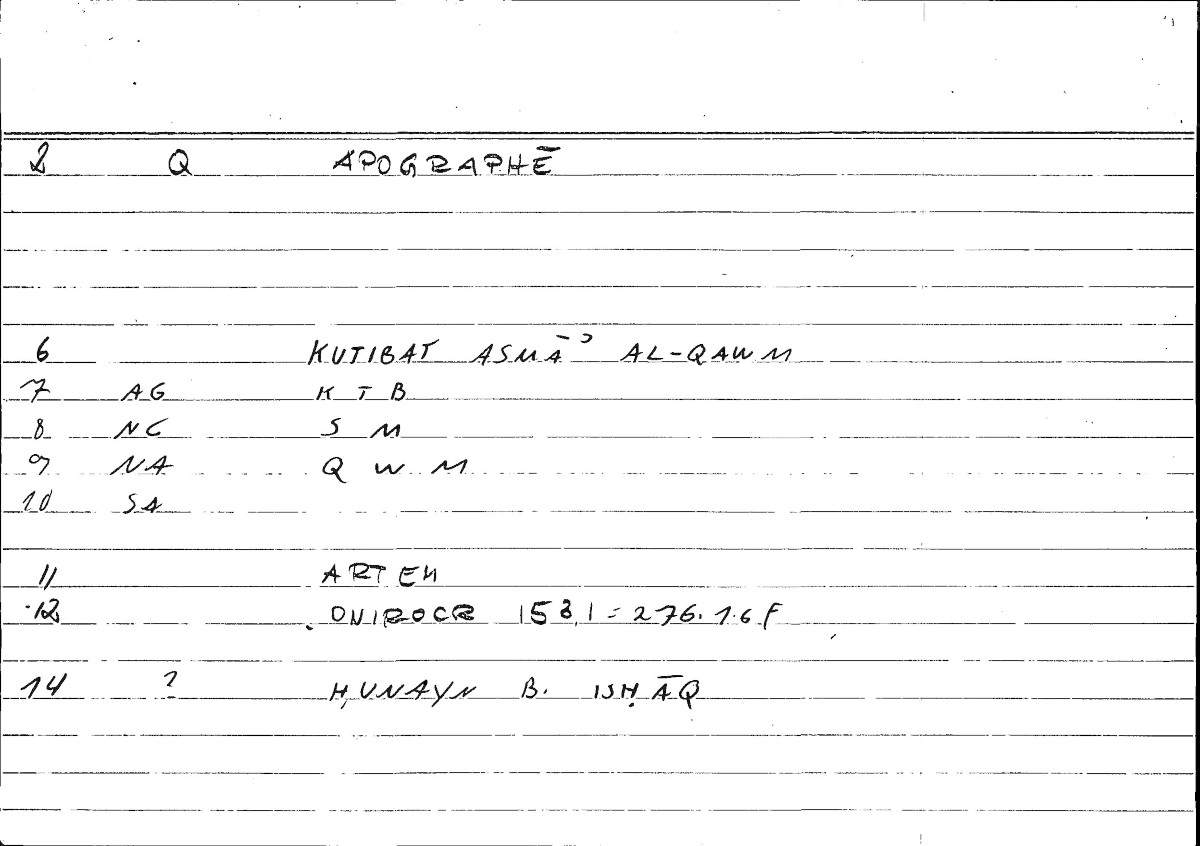 2 Q APOGRAPHĒ
6 KUTIBAT ASMĀʾ AL-QAWM
7 AG K T B
8 NC S M
9 NA Q W M
10 SA
11 ARTEM
12 ONIROCR 153,1 = 276.1.6 F
14 ? ḤUNAYN B. ISḤĀQ